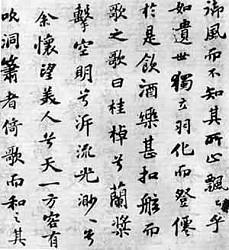 御風而不知其所止飄〻乎
如遺世獨立羽化而登僊
於是飲酒樂甚扣舷而
歌之歌曰桂棹兮蘭槳
擊空明兮泝流光渺〻兮
余懷望美人兮天一方客有
吹洞簫者倚歌而和之其